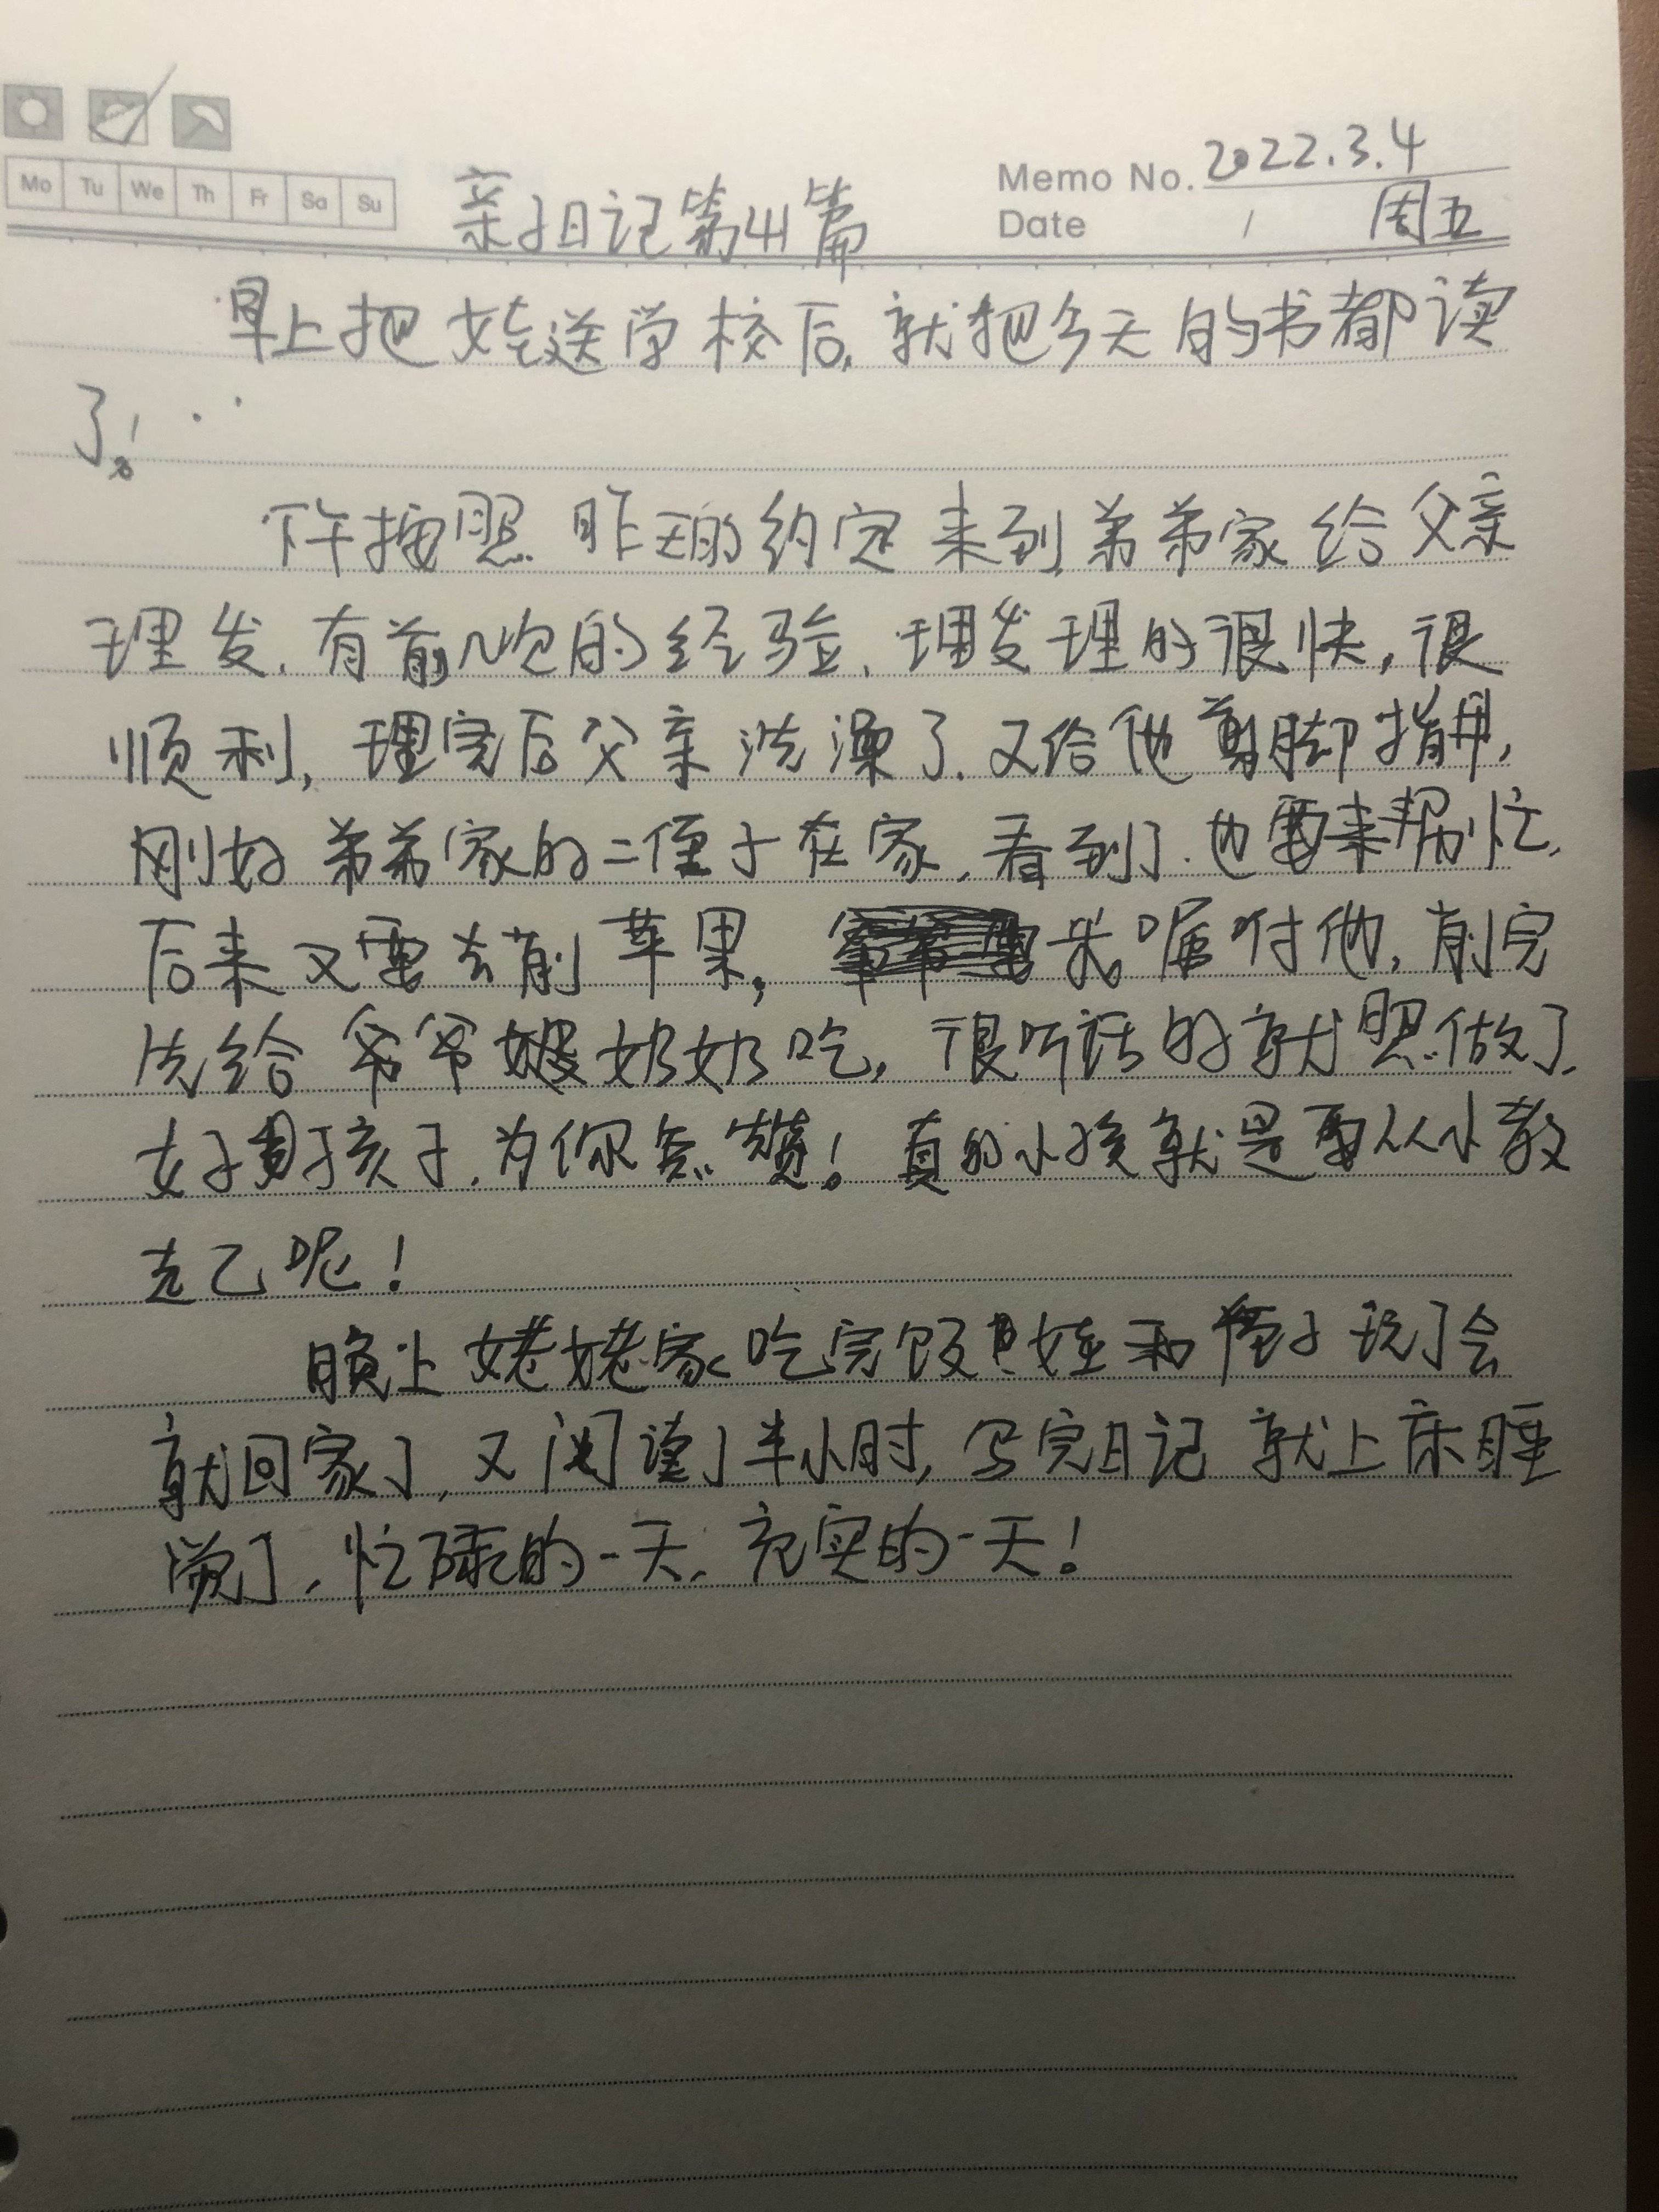 2022.3.4
Memo No.
Mo Tu We Th Fr Sa Su
亲子日记第41篇
Date / 周五
早上把娃送学校后,就把今天的书都读
了!
下午按照昨天的约定来到弟弟家给父亲
理发,有前几次的经验,理发理的很快,很
顺利,理完后父亲洗澡了,又给他剪脚指甲,
刚好弟弟家的二侄子在家,看到了也要来帮忙,
后来又要去削苹果,我嘱咐他,削完
先给爷爷奶奶吃,很听话的就照做了,
好男孩子,为你点赞!真的小孩就是要从小教
克己呢!
晚上姥姥家吃完饭娃和侄子玩了会
就回家了,又阅读了半小时,写完日记就上床睡
觉了,忙碌的一天,充实的一天!